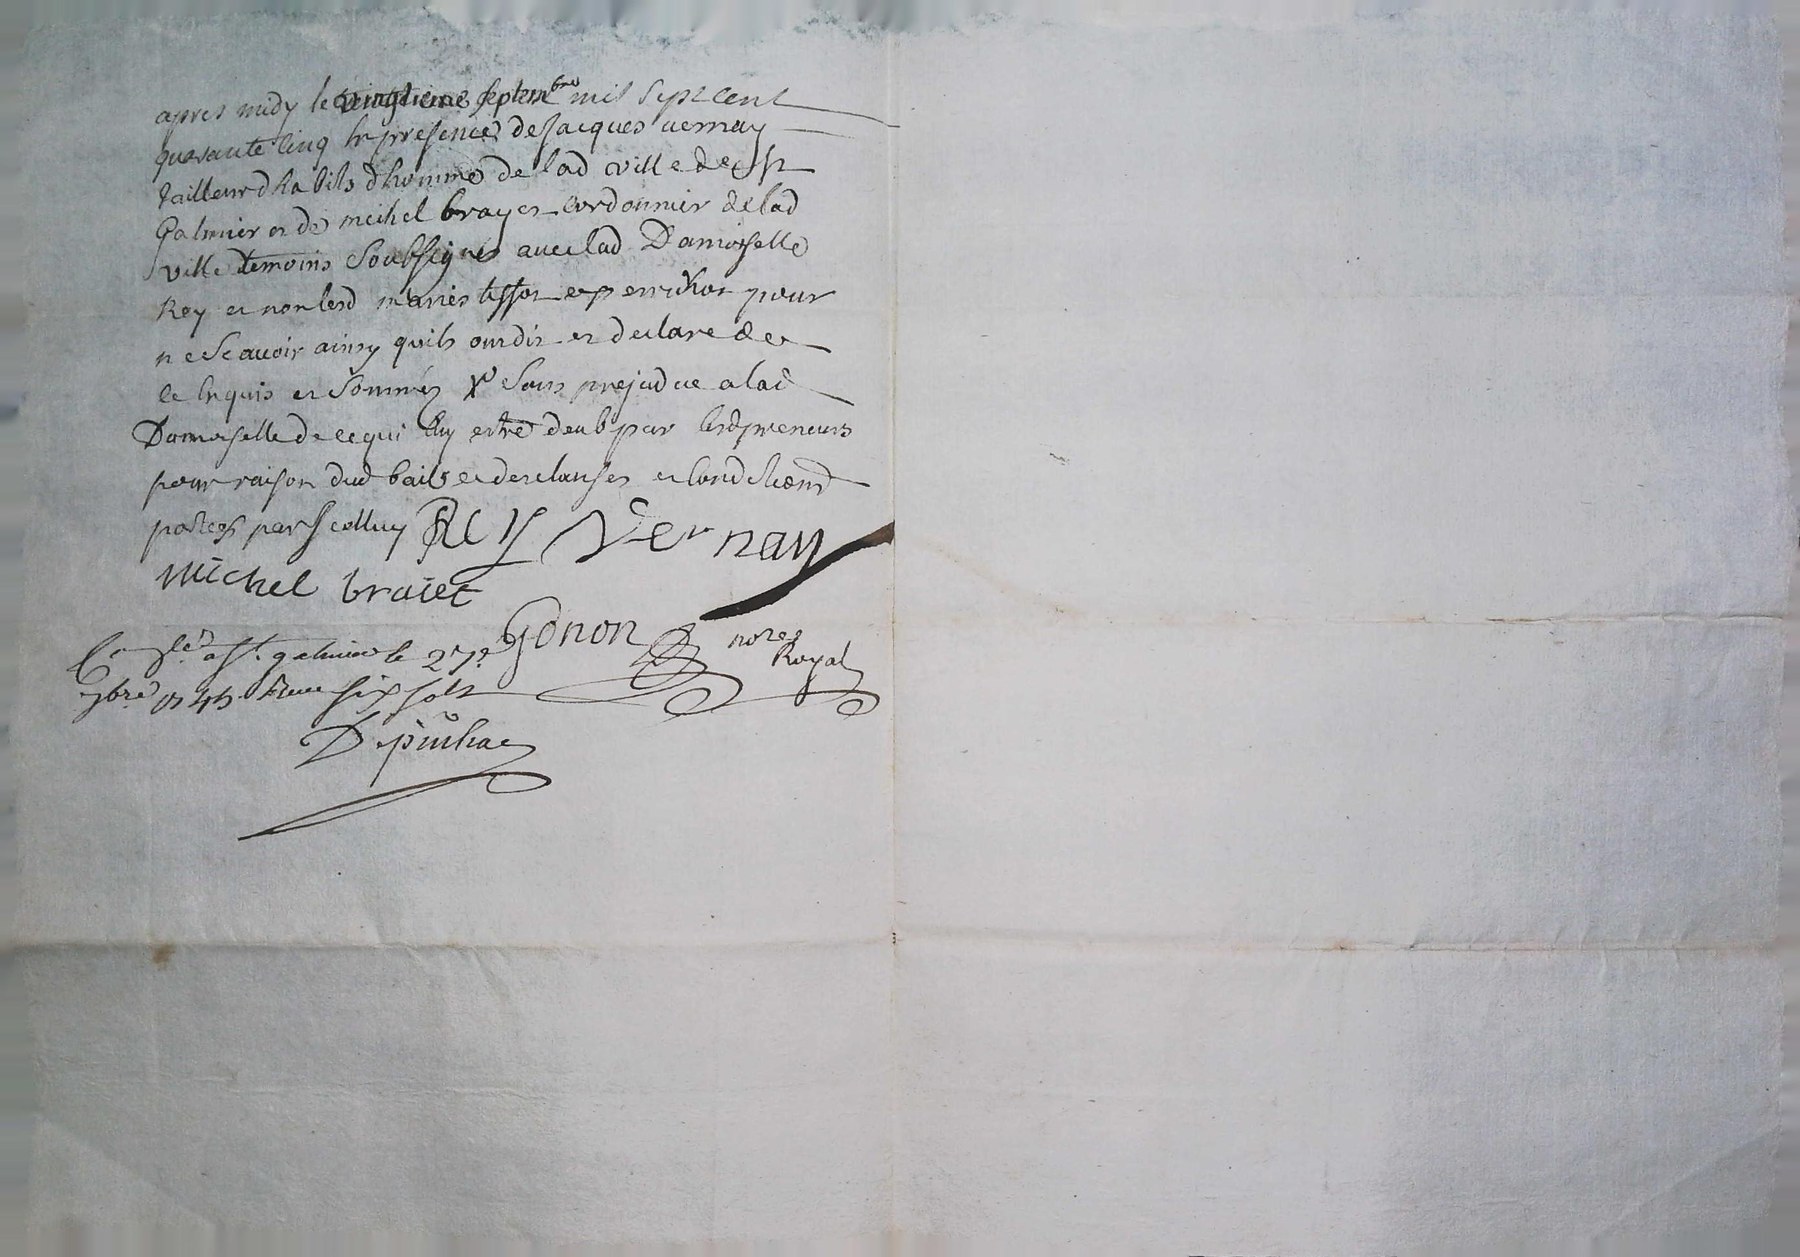 apres midy le vingtieme septembre mil sept cent
quarante cinq en presence de Jacques vernay
tailleur dhabits dhomme de lad ville de st
Galmier et de michel brayet cordonnier de lad
ville temoins soubsignés avec lad Damoiselle
Rey et non lesd mariés tissot et perrichon pour
ne scavoir ainsy quils ont dit et declare de
ce enquis et sommés sans prejudice a lad
Damoiselle de ce qui luy estre deub par lesd preneurs
pour raison dud bail et des clauses et conditions
portees par icelluy Rey Vernay
michel braiet
Gonon notre
Royal
Conlé a st. galmier le 27e
7bre 1745 Reçu six sols
Depinhac